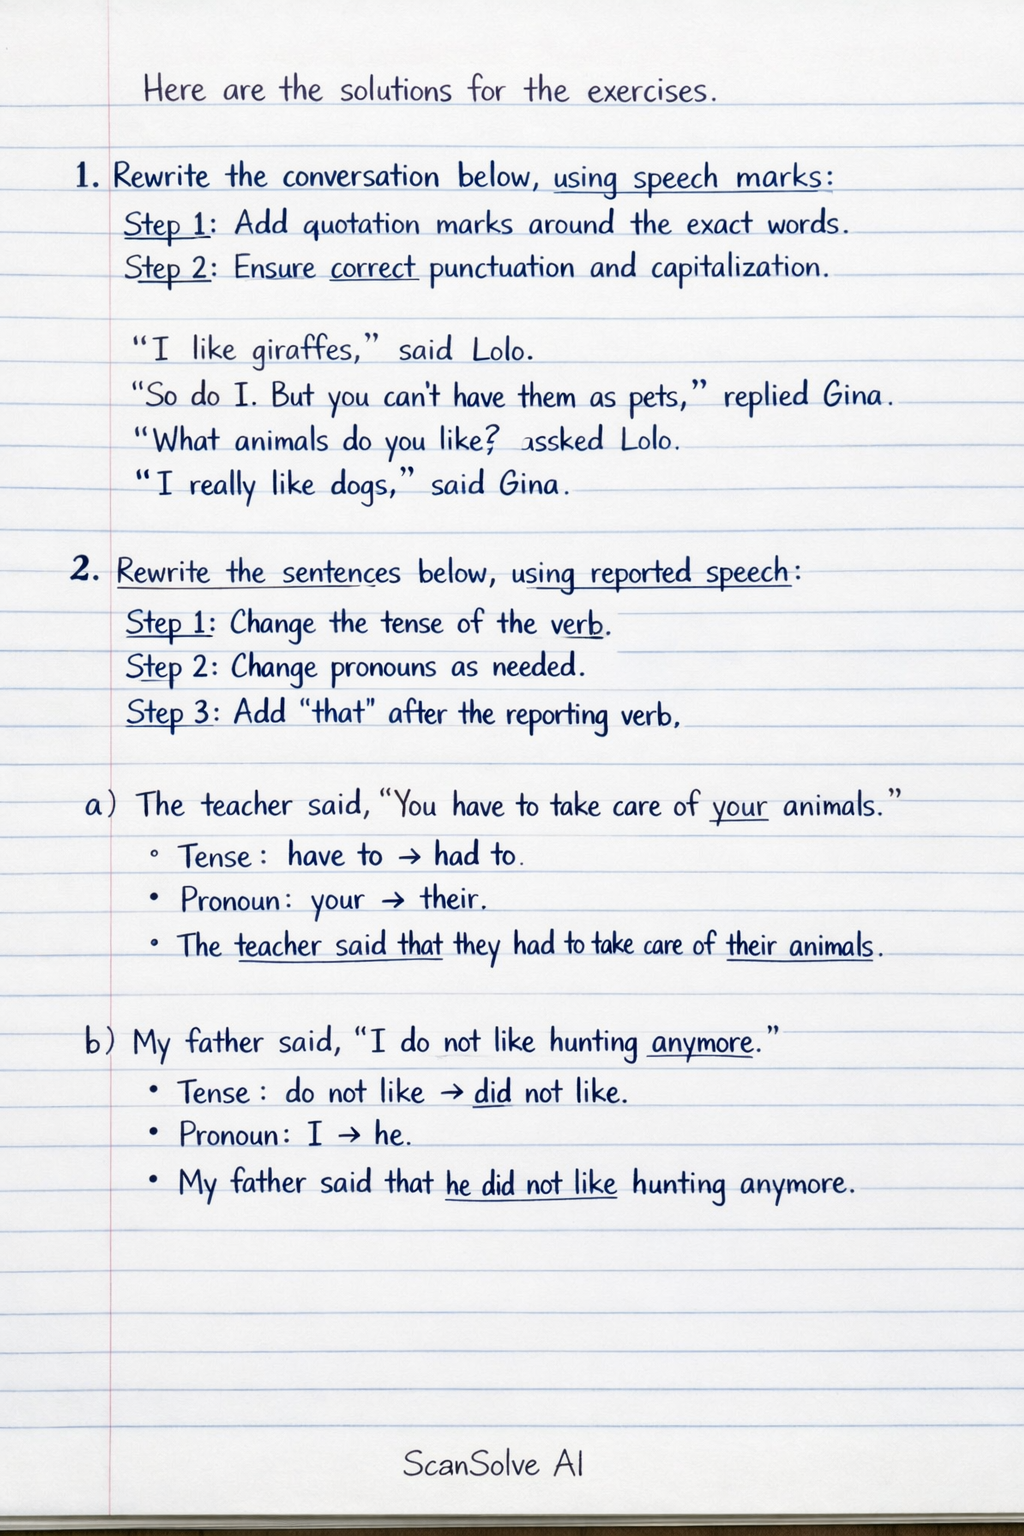 Here are the solutions for the exercises.
1. Rewrite the conversation below, using speech marks:
Step 1: Add quotation marks around the exact words.
Step 2: Ensure correct punctuation and capitalization.
“I like giraffes,” said Lolo.
“So do I. But you can't have them as pets,” replied Gina.
“What animals do you like? assked Lolo.
“I really like dogs,” said Gina.
2. Rewrite the sentences below, using reported speech:
Step 1: Change the tense of the verb.
Step 2: Change pronouns as needed.
Step 3: Add “that” after the reporting verb,
a) The teacher said, “You have to take care of your animals.”
◦ Tense: have to → had to.
• Pronoun: your → their.
• The teacher said that they had to take care of their animals.
b) My father said, “I do not like hunting anymore.”
• Tense: do not like → did not like.
• Pronoun: I → he.
• My father said that he did not like hunting anymore.
ScanSolve AI